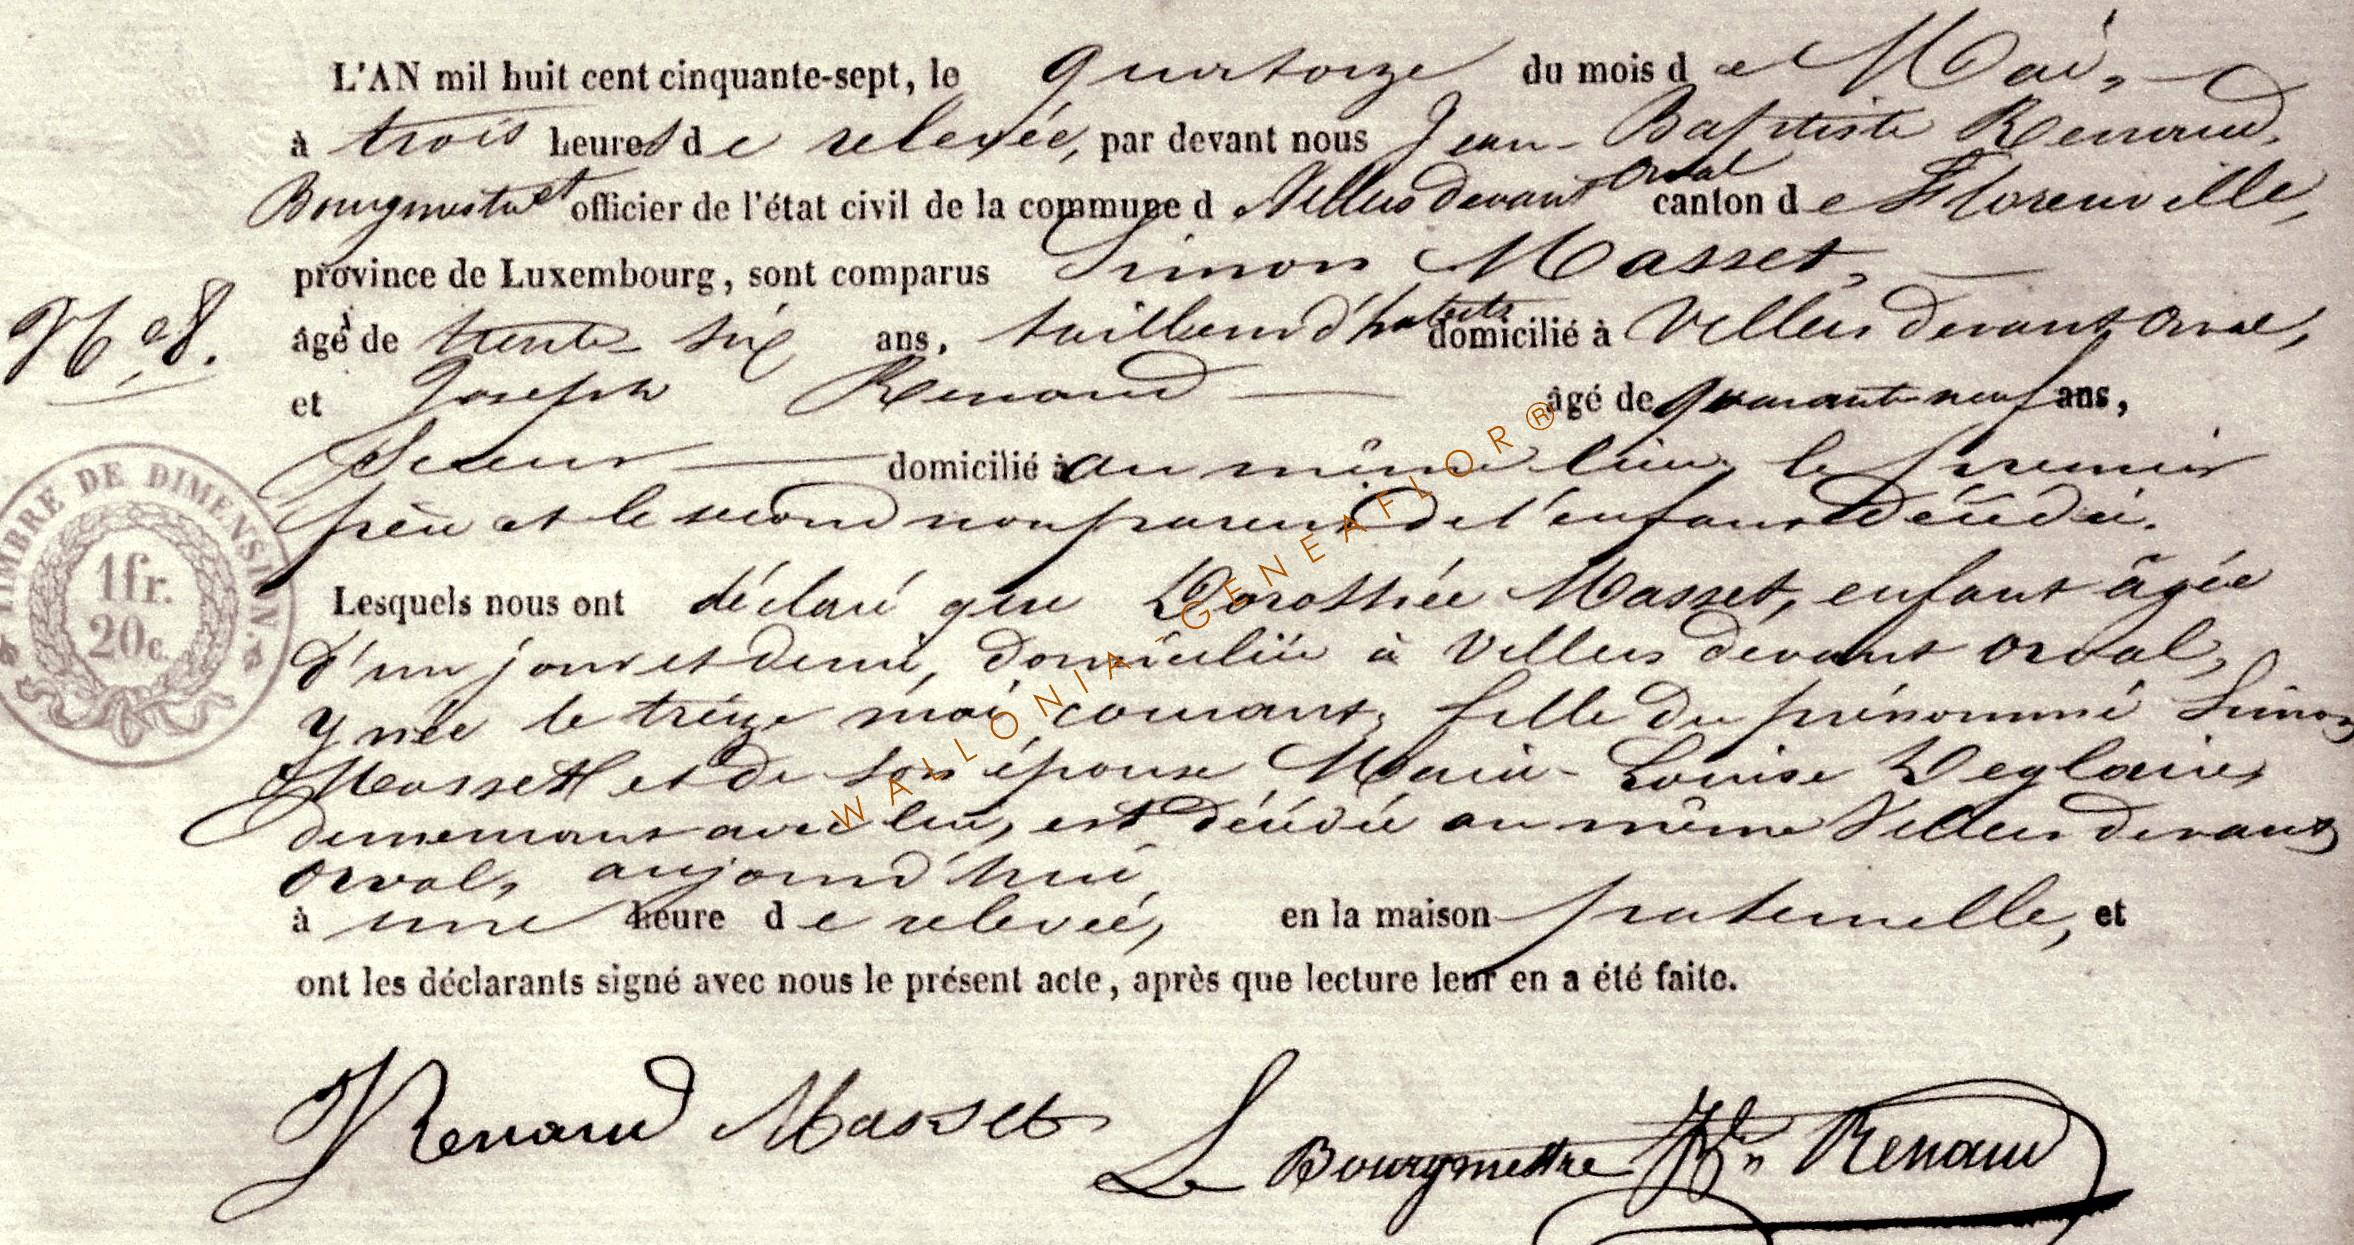 L'AN mil huit cent cinquante-sept, le quatorze du mois de Mai,
à trois heures de relevée, par devant nous Jean-Baptiste Renaud,
Bourgmestre et officier de l'état civil de la commune d Villers devant Orval canton de Florenville,
province de Luxembourg, sont comparus Simon Masset,
N° 8.
âgé de trente six ans, tailleur d'habits domicilié à Villers devant Orval,
et Joseph Renaud âgé de quarante-neuf ans,
domicilié à au même lieu, le premier
père et le second non parent de l'enfant décédé.
Lesquels nous ont déclaré que Dorothée Masset, enfant âgée
d'un jour et demi, domiciliée à Villers devant Orval,
y née le treize mai courant, fille du prénommé Simon
Masset et de son épouse Marie-Louise Deglaire,
demeurant avec lui, est décédée au même Villers devant
Orval, aujourd'hui
à une heure de relevée, en la maison paternelle, et
ont les déclarants signé avec nous le présent acte, après que lecture leur en a été faite.
TIMBRE DE DIMENSION.
1fr.
20c.
WALLONIA-GENEAFLOR®
Renaud Masset Le Bourgmestre Renaud